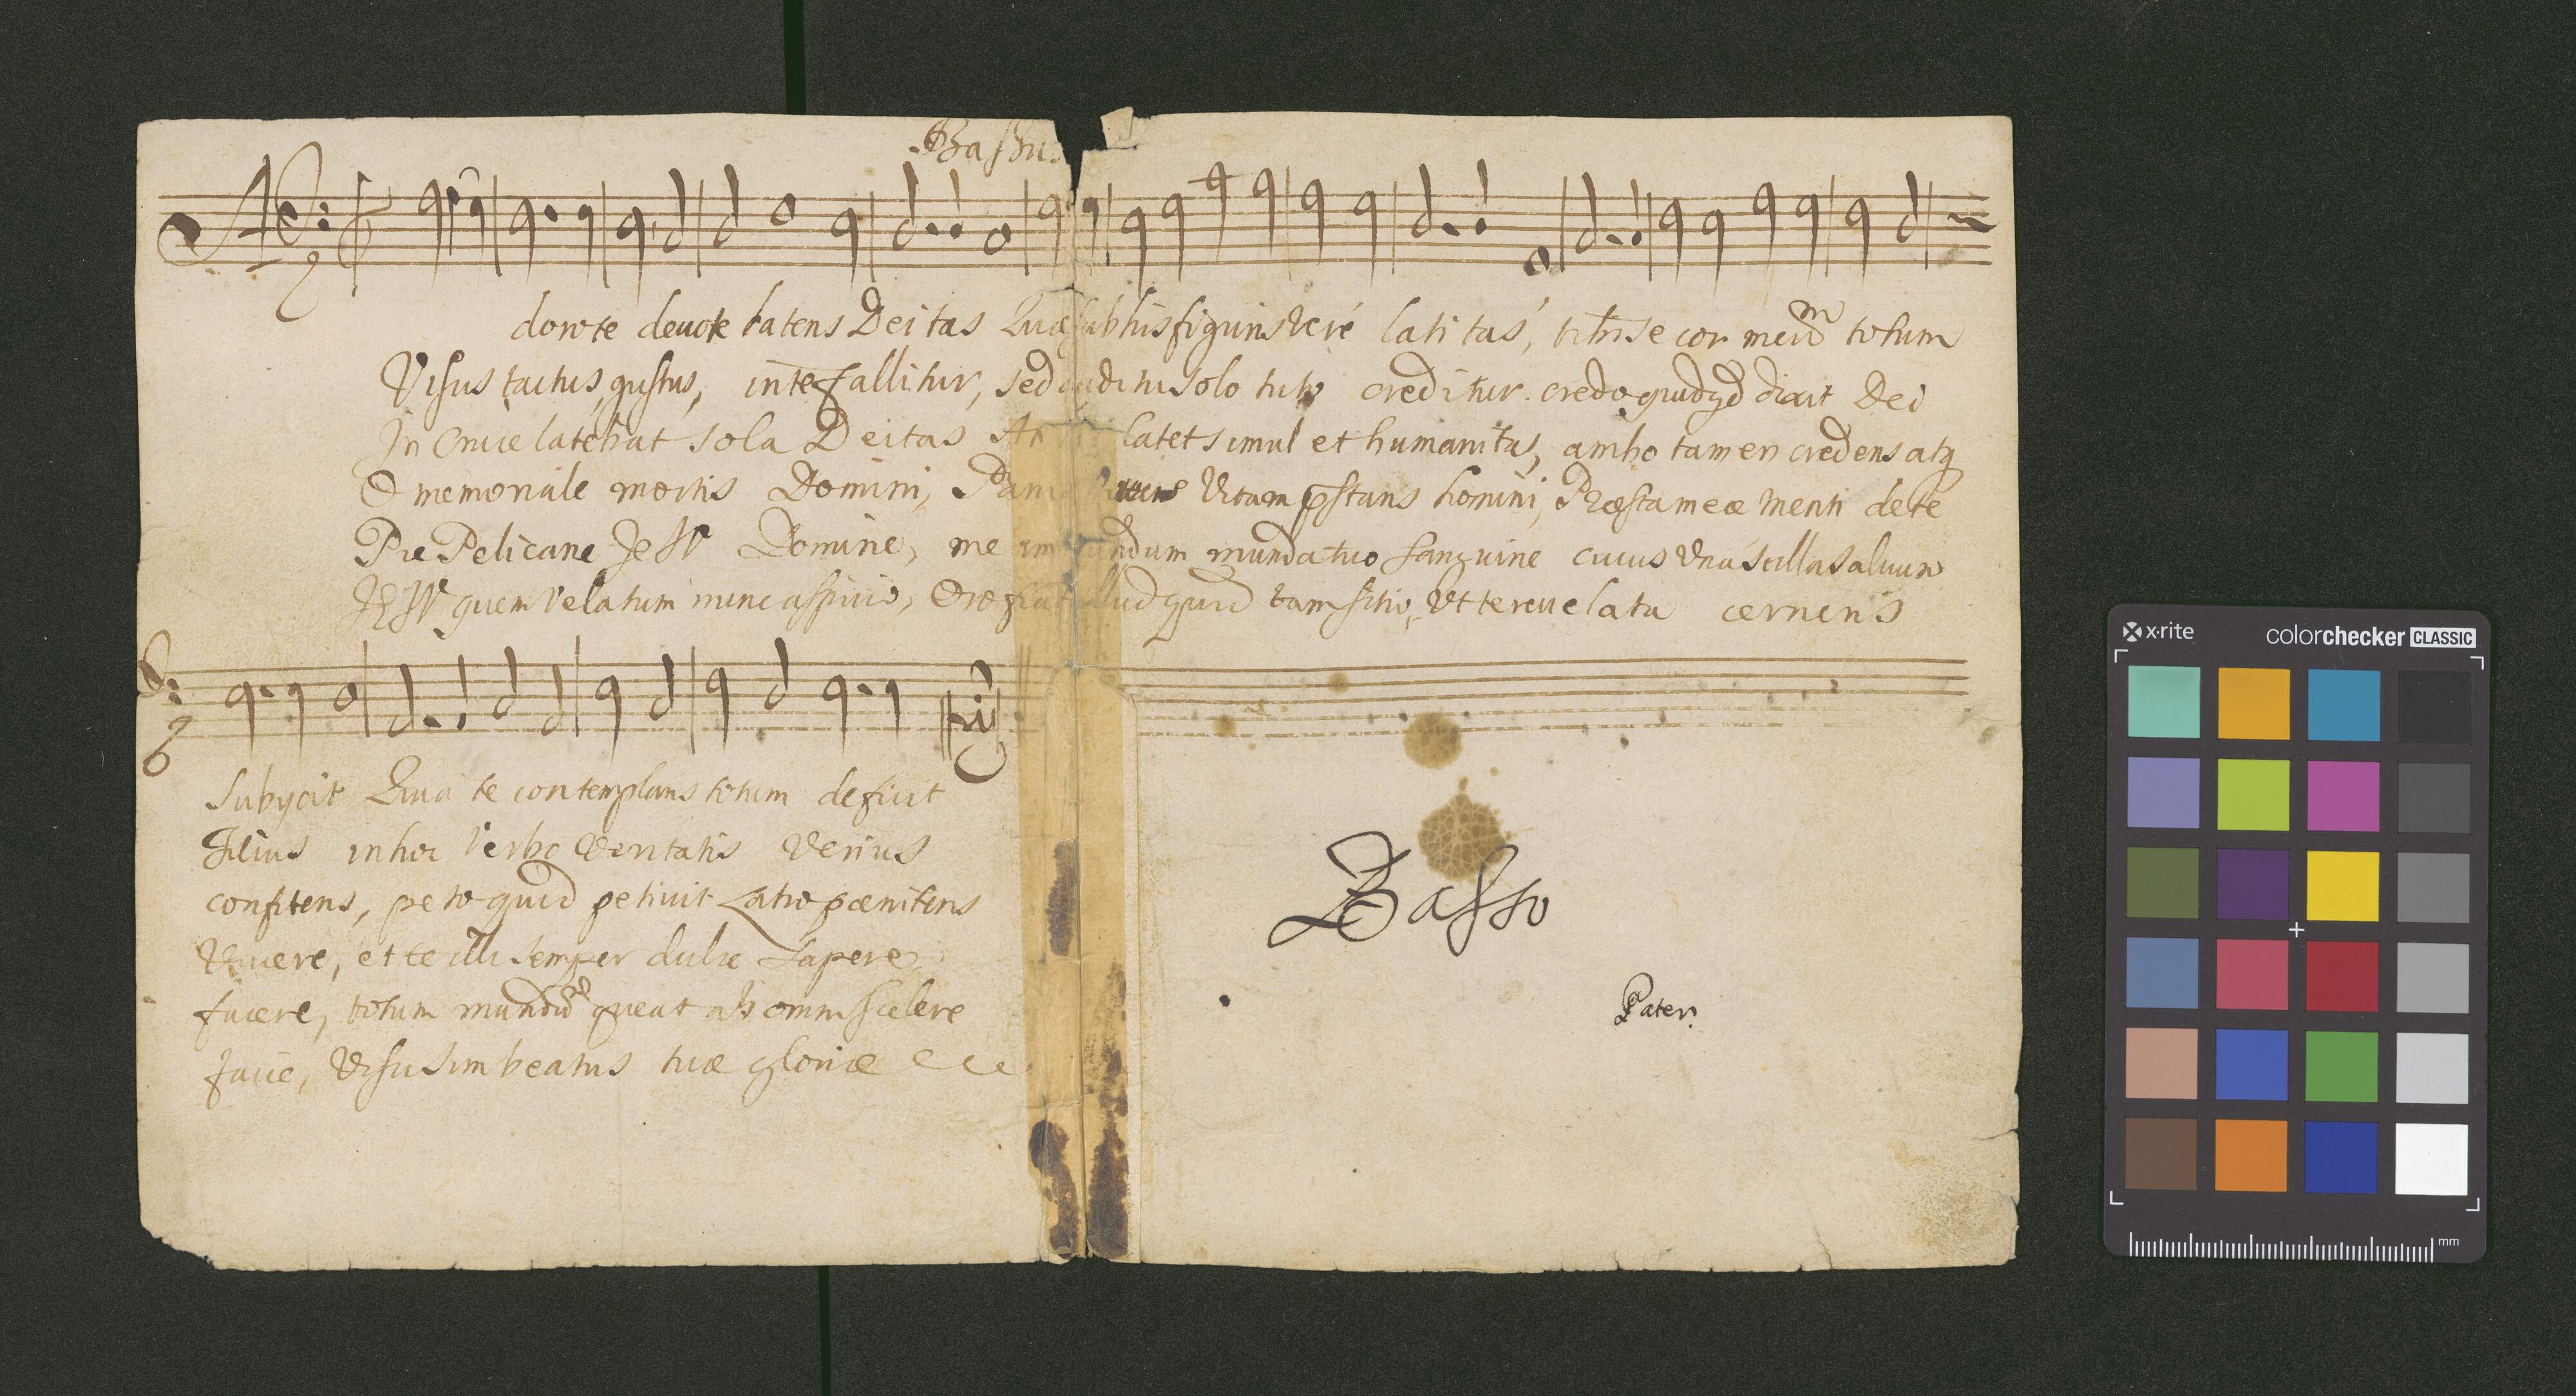 Bassus
A
dorote deuote latens Deitas Quæ sub his figuris vere latitas, tibi se cor meũ totum
Visus tactus, gustus, in te fallitur, sed auditu solo tuto creditur. credo quidqd dixit Dei
In Cruce latebat sola Deitas At latet simul et humanitas, ambo tamen credens atq
O memoriale mortis Domini, Panis vitam pstans homini, Præsta meæ menti de te
Pie Pelicane JesV Domine, me immundum munda tuo sanguine cuius vna stilla saluum
JESV quem velatum nunc aspicio, Oro fiat illud quod tam sitio, Vt te reuelata cernens
Subycit Quia te contemplans totum deficit
Filius in hoc verbo veritatis verius
confitens, peto quod petiuit Latro pœnitens
viuere, et te illi semper dulce sapere
facere, totum mundũ queat ab omni scelere
facie, visu sim beatus tuæ gloriæ
Basso
Pater.
x·rite
colorchecker CLASSIC
mm